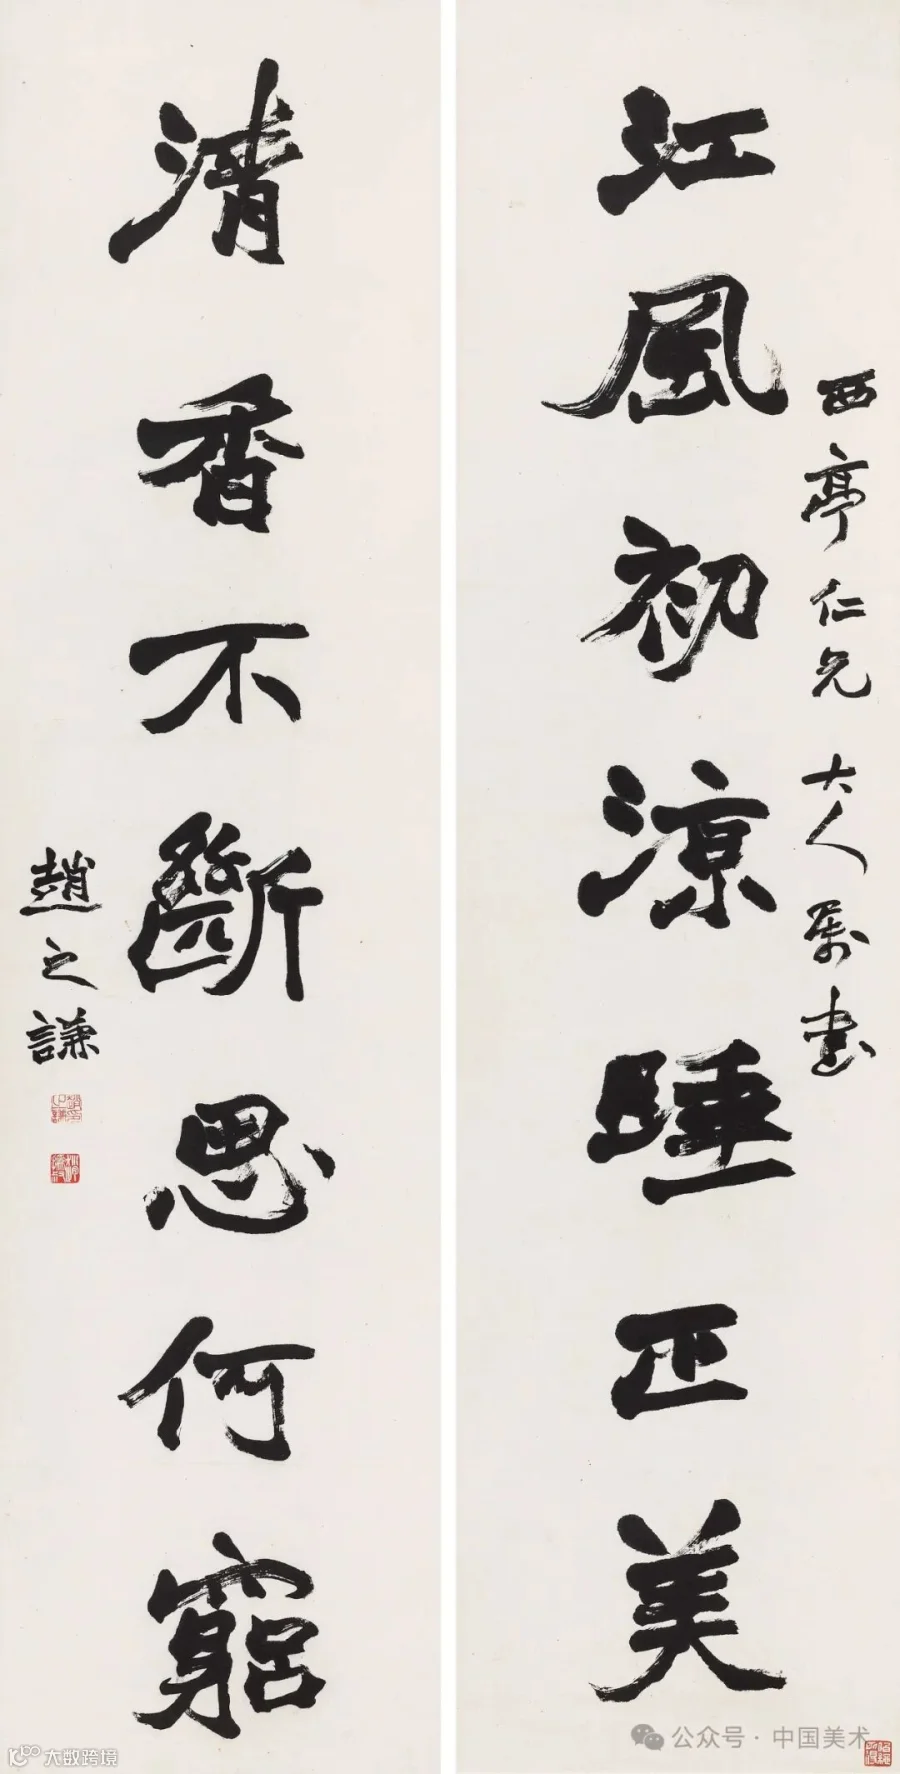 西亭仁兄大人属書
江風初涼睡正美
清香不斷思何窮
趙之謙
公众号·中国美术
大数跨境